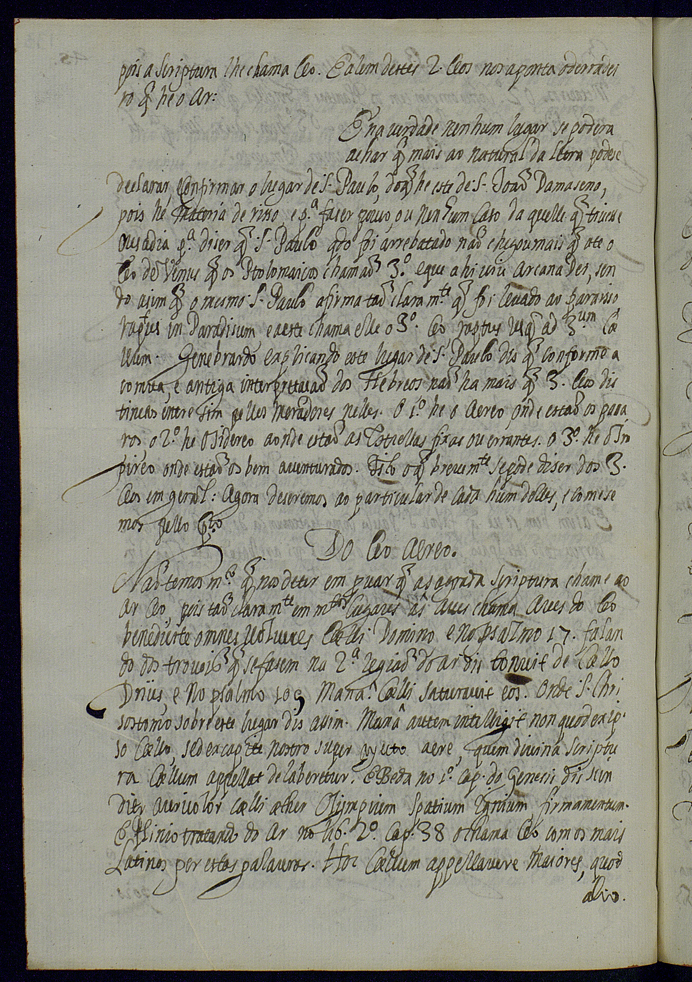 pois a Scriptura lhe chama Ceo. E alem destes 2. Ceos nos aponta o derradei
ro q̃ he o Ar:
E na verdade nenhum lugar se podera
achar q̃ mais ao natural da letra podese
declarar e confirmar o lugar de S. Paulo, do q̃ he este de S. Joaõ Damaseno,
pois he materia de riso, e p.ª faser pouco ou nenhum caso da quelle q̃ tiuese
ousadia p.ª diser q̃ S. Paulo qdo foi arrebatado naõ chegou mais q̃ ate o
Ceo de Venus q̃ os Ptolomaicos chamaõ 3.º e que ahi uiu arcana Dei, sen
do asim q̃ o mesmo S. Paulo afirma taõ claram.te q̃ foi leuado ao paraiso
raptus in Paradisum e a este chama elle o 3.º Ceo raptus usq̃ ad 3.um Cæ
lum. Genebrardo explicando este lugar de S. Paulo dis q̃ conforme a
comua, e antiga interpretacaõ dos Hebreos naõ ha mais q̃ 3. Ceos dis
tinctos entre sim pellos moradores nelles. O 1.º he o Aereo onde estaõ os pasa
ros. o 2.º he o Sidereo aonde estaõ as Estrellas fixas ou errantes. o 3.º he o Im
pireo onde estaõ os bem auenturados. Isto o q̃ breuem.te se pode diser dos 3.
Ceos em geral: Agora deseremos ao particular de cada hum delles, e comese
mos pello
Do Ceo Aereo.
Naõ temos m.to q̃ nos deter em prouar q̃ a sagrada Scriptura chame ao
Ar Ceo pois taõ claram.te em m.tos lugares âs Aues chama Aues do Ceo
benedicite omnes Volucres Cæli Domino. e No psalmo 17. falan
do dos trouois q̃ se fasem na 2.ª regiaõ do ar dis tonuit de Cællo
Dñus e No psalmo Mana Cælli saturauit eos. Onde S. Chri
sostomo sobre este lugar dis asim. Manâ autem intelligit non quod ex ip
so Cællo, sed e capite nostro super aere, quem diuina Scriptu
ra Cællum appellat delaberetur. E Beda no 1.º cap. do Genesis dis scin
ditr auriuolor cælli æther Olympuum spatium Igneum firmamentum.
E Plinio tratando do Ar no lib. 2.º Cap. 38 o chama Ceo com os mais
Latinos por estas palauras. Hoc Cællum appellauere Maiores, quod
alio.